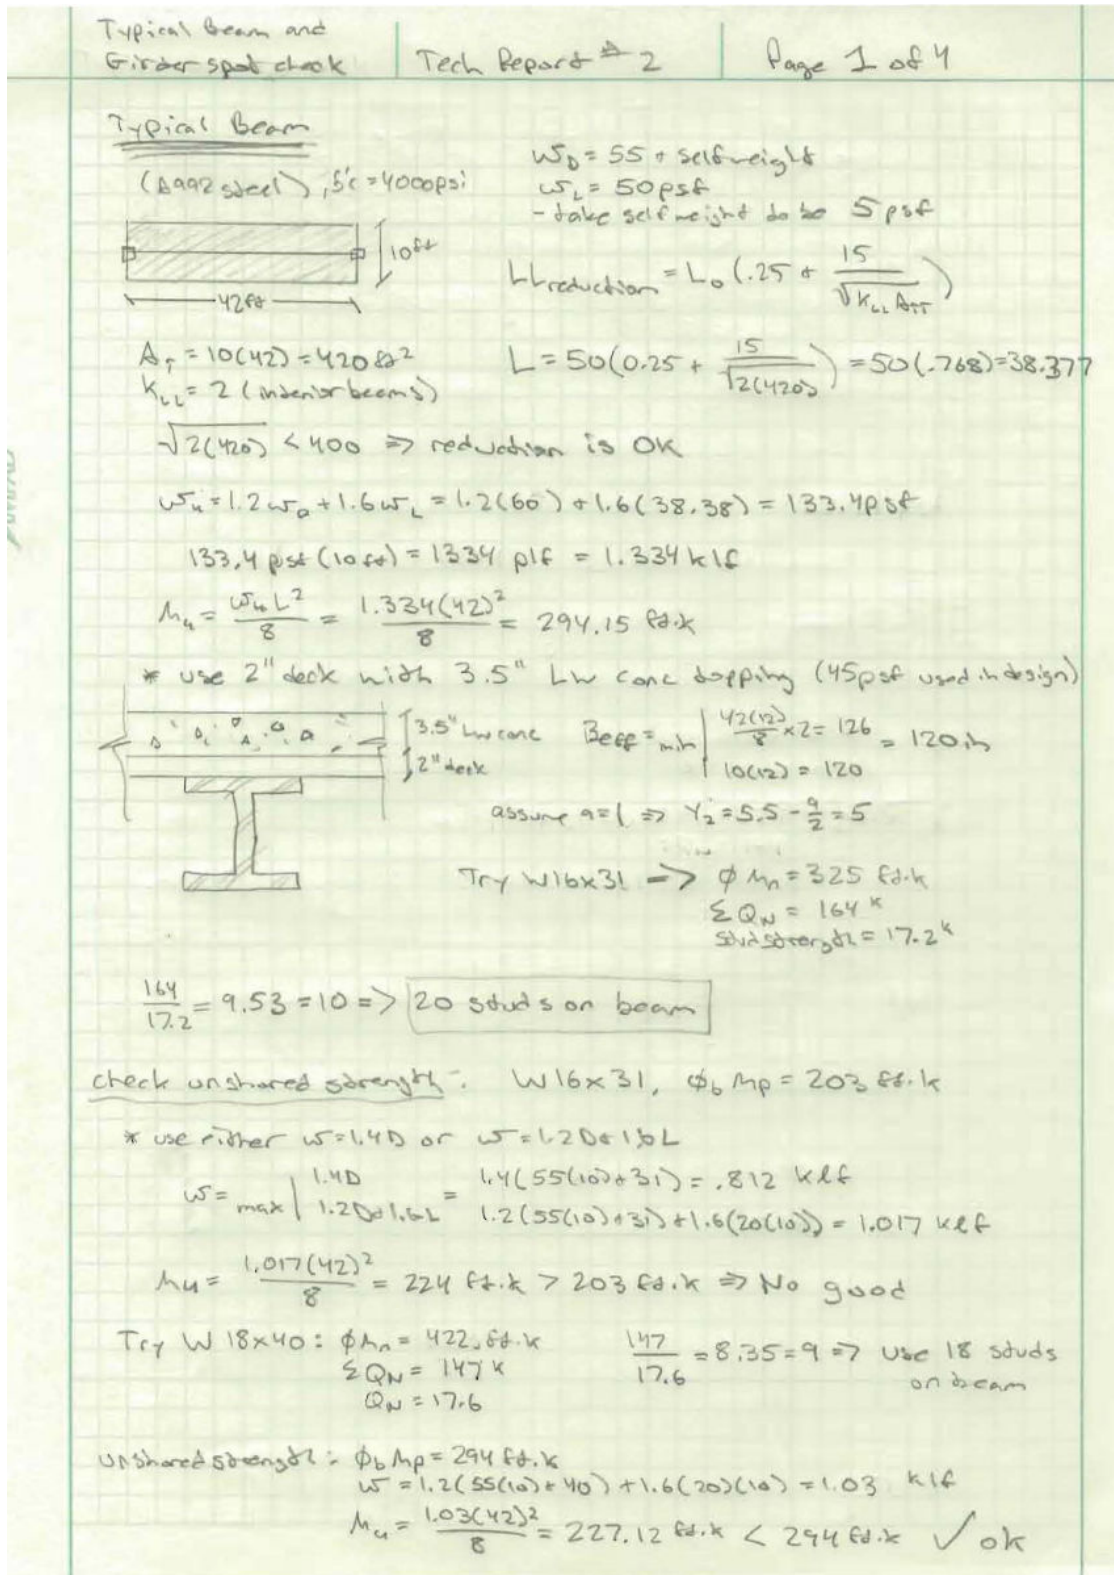 Typical Beam and
Girder spot check
Tech Report #2
Page 1 of 4
Typical Beam
(A992 steel), f'c = 4000psi
W_D = 55 + selfweight
W_L = 50psf
- take selfweight to be 5 psf
10ft
42ft
LL reduction = L_o (.25 + 15/√(K_LL A_TT))
A_T = 10(42) = 420 ft²
L = 50(0.25 + 15/√(2(420))) = 50(.768) = 38.377
K_LL = 2 (interior beams)
√2(420) < 400 => reduction is OK
w_u = 1.2 w_D + 1.6 w_L = 1.2(60) + 1.6(38.38) = 133.4psf
133.4 psf (10 ft) = 1334 plf = 1.334 klf
M_u = w_u L²/8 = 1.334(42)²/8 = 294.15 ft.k
* use 2" deck with 3.5" LW conc topping (45psf used in design)
3.5" LW conc
2" deck
Beff = min | 42(12)/8 x2 = 126
10(12) = 120
= 120in
assume a=1 => Y2 = 5.5 - a/2 = 5
Try W16x31 => φMn = 325 ft.k
ΣQN = 164 k
stud strength = 17.2 k
164/17.2 = 9.53 = 10 => 20 studs on beam
check unshored strength: W16x31, φb Mp = 203 ft.k
* use either w=1.4D or w=1.2D+1.6L
w = max | 1.4D = 1.4(55(10)+31) = .812 klf
1.2D+1.6L 1.2(55(10)+31)+1.6(20(10)) = 1.017 klf
Mu = 1.017(42)²/8 = 224 ft.k > 203 ft.k => No good
Try W 18x40: φMn = 422 ft.k
ΣQN = 147 k
QN = 17.6
147/17.6 = 8.35 = 9 => use 18 studs
on beam
unshored strength: φb Mp = 294 ft.k
w = 1.2(55(10)+40) + 1.6(20)(10) = 1.03 klf
Mu = 1.03(42)²/8 = 227.12 ft.k < 294 ft.k ✓ ok